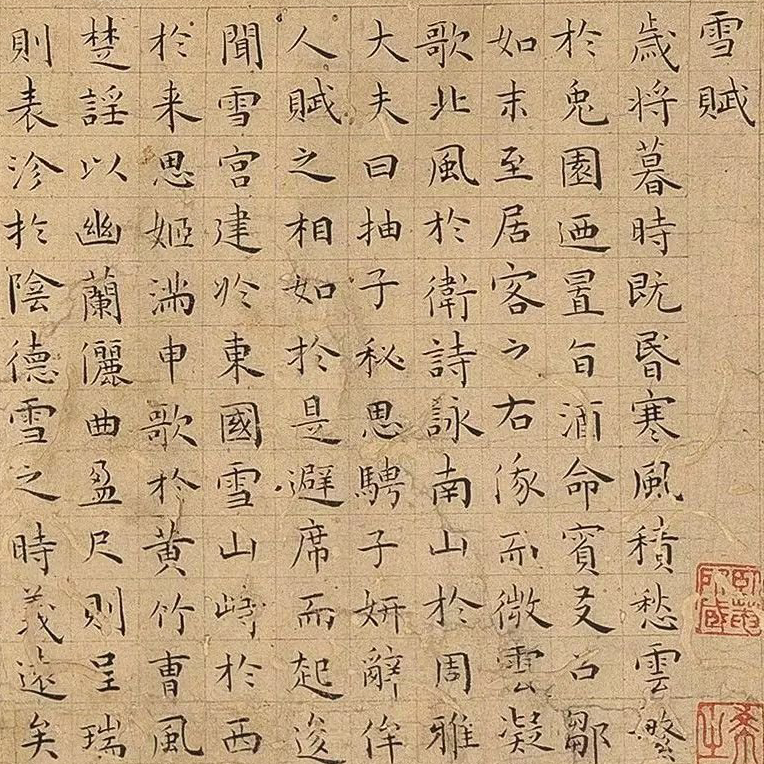 雪賦
歲將暮時既昏寒風積愁雲繁
於兔園迺置旨酒命賓友召鄒
如末至居客之右俄而微雲凝
歌北風於衛詩詠南山於周雅
大夫曰抽子秘思騁子妍辭侔
人賦之相如於是避席而起逡
聞雪宮建於東國雪山峙於西
於来思姬滿申歌於黃竹曹風
楚謠以幽蘭儷曲盈尺則呈瑞
則表沴於陰德雪之時義遠矣
卧菴所藏